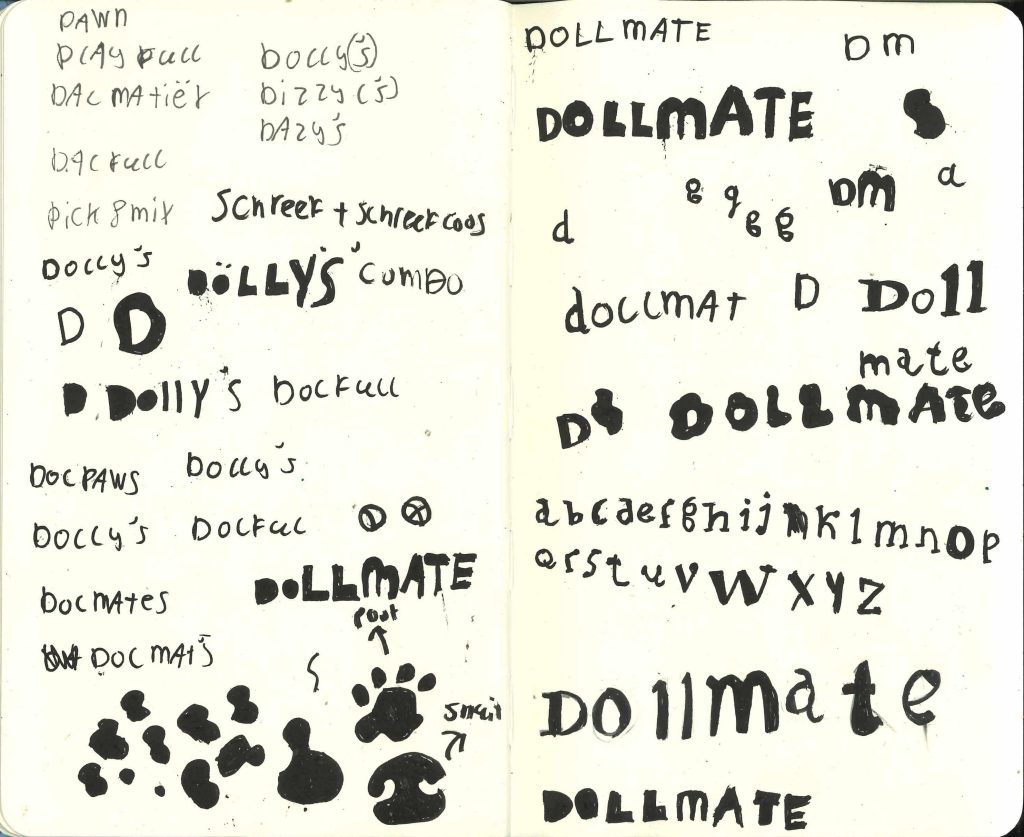 PAWN
PLAYFULL
DOLLY('S)
DALMATIËR
DIZZY('S)
DAZY'S
DALFULL
PICK & MIX
SCHREEF + SCHREEFLOOS
DOLLY'S
DÖLLY'S
COMBO
D D
D DOLLY'S
DOLFULL
DOLPAWS
DOLLY'S
DOLLY'S
DOLFUL
DOLMATES
DOLLMATE
POOT
DOLMAT'S
DOLLMATE
DM
DOLLMATE
g g
g g
DM
a
d
dollmat
D
Doll
mate
D
DOLLMATE
abcdefghij klmnop
qrstuvwxyz
Dollmate
DOLLMATE